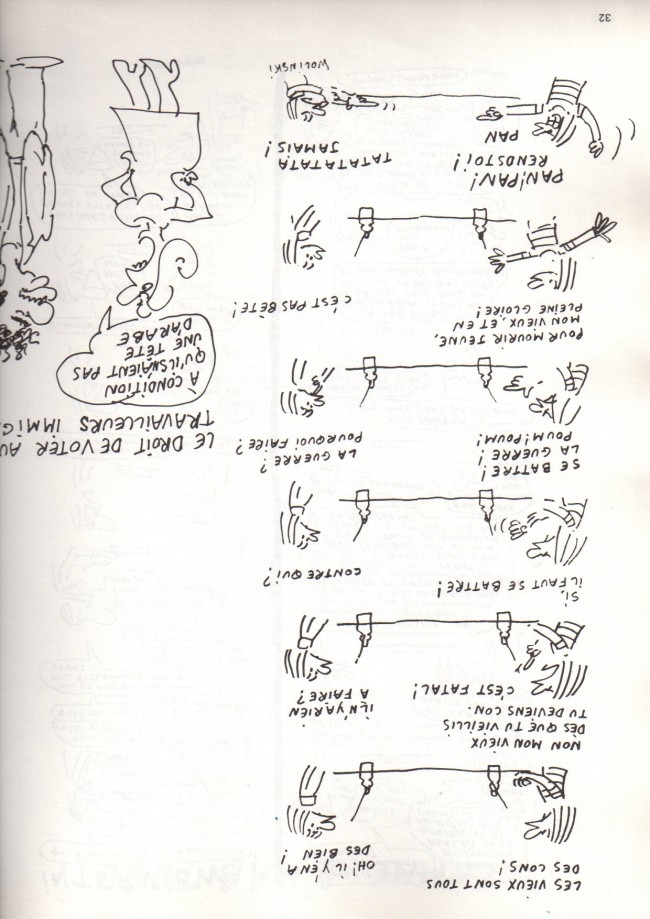 LES VIEUX SONT TOUS
DES CONS!
OH! IL Y EN A
DES BIEN!
NON MON VIEUX
DÈS QUE TU VIEILLIS
TU DEVIENS CON.
C'EST FATAL!
IL N'Y A RIEN
A FAIRE?
SI,
IL FAUT SE BATTRE!
CONTRE QUI?
SE BATTRE!
LA GUERRE!
POUM! POUM!
LA GUERRE?
POURQUOI FAIRE?
POUR MOURIR JEUNE,
MON VIEUX, ET EN
PLEINE GLOIRE!
C'EST PAS BÊTE!
PAN! PAN!
RENDS TOI!
PAN
TATATATATA
JAMAIS!
WOLINSKI
LE DROIT DE VOTER AU
TRAVAILLEURS IMMIG
À CONDITION
QU'ILS N'AIENT PAS
UNE TÊTE
D'ARABE
32